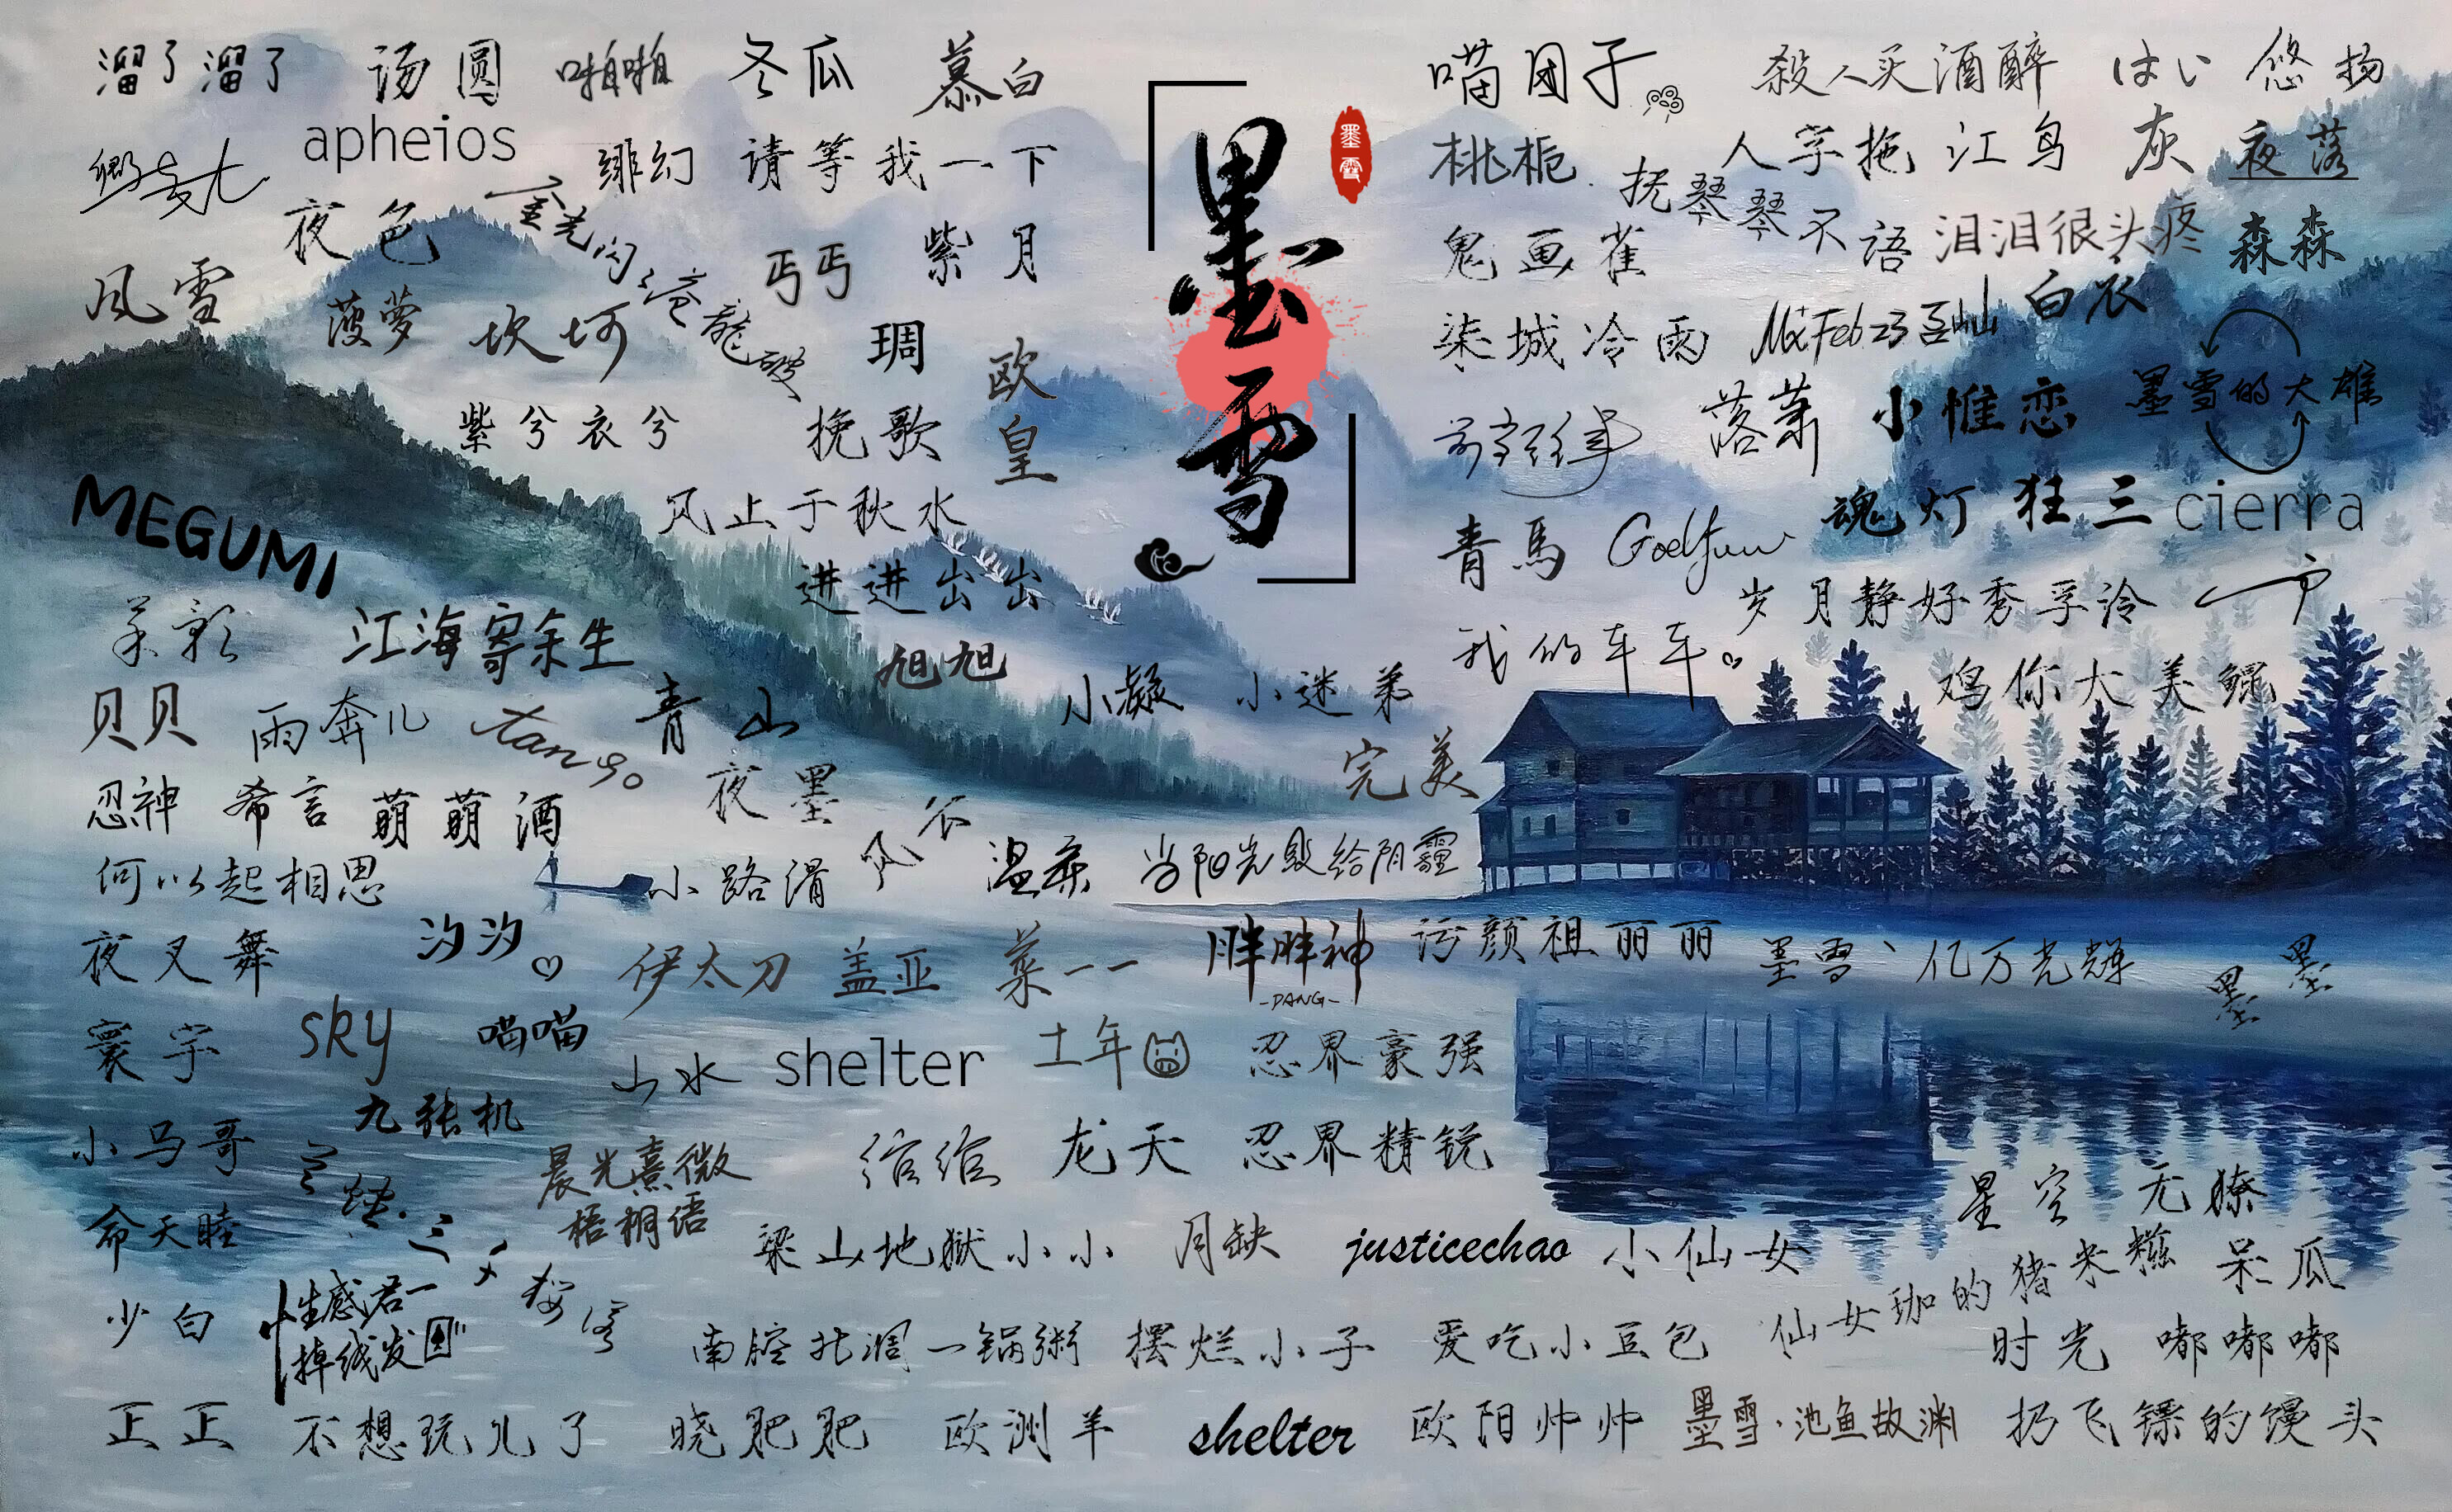 溜了溜了
汤圆
啪啪
冬瓜
慕白
apheios
绯幻
请等我一下
夜色
金光闪闪苍龍破
丐丐
紫月
风雪
菠萝
坎坷
琱
欧皇
紫兮衣兮
挽歌
风止于秋水
MEGUMI
进进出出
旭旭
江海寄余生
贝贝
雨奔儿
tango
青山
夜墨
忍神
希言
萌萌酒
何以起相思
小路滑
风谷
温柔
夜叉舞
汐汐
伊太刀
盖亚
菜一一
寰宇
sky
喵喵
山水
shelter
土年
小马哥
九张机
晨光熹微
梧桐语
绾绾
龙天
命天睦
少白
性感君一
掉线发图"
梁山地狱小小
月缺
南腔北调一锅粥
正正
不想玩儿了
晓肥肥
欧洲羊
shelter
墨雪
墨雪
喵团子
殺人买酒醉
はい
悠扬
桃栀
抚琴琴不语
人字拖
江鸟
灰
夜落
鬼画雀
泪泪很头疼
森森
柒城冷雨
MxFeb.23吾山山
白衣
落萧
小惟恋
墨雪的大雄
青馬
魂灯
狂三
cierra
岁月静好秀孚泠
我的车车
小凝
小迷弟
鸡你大美鲲
完美
当阳光毁给阴霾
胖胖神
-PANG-
污颜祖丽丽
墨雪丶亿万光辉
墨墨
忍界豪强
忍界精锐
星空
无獠
justicechao
小仙女
仙女珈的猪米糍
呆瓜
摆烂小子
爱吃小豆包
时光
嘟嘟嘟
欧阳帅帅
墨雪·池鱼故渊
扔飞镖的馒头